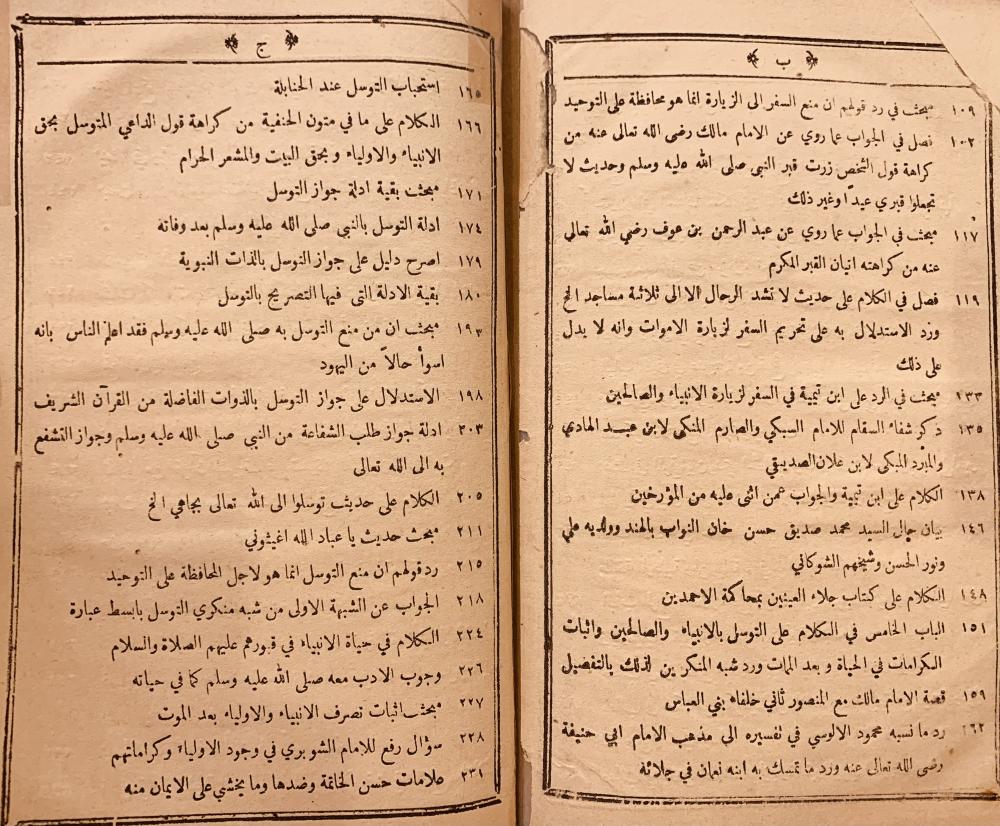 ب
١٠٩ مبحث في رد قولهم ان منع السفر الى الزيارة انما هو محافظة على التوحيد
١٠٢ فصل في الجواب عما روي عن الامام مالك رضى الله تعالى عنه من
كراهة قول الشخص زرت قبر النبي صلى الله عليه وسلم وحديث لا
تجعلوا قبري عيداً وغير ذلك
١١٧ مبحث في الجواب عما روي عن عبد الرحمن بن عوف رضي الله تعالى
عنه من كراهته اتيان القبر المكرم
١١٩ فصل في الكلام على حديث لا تشد الرحال الا الى ثلاثة مساجد الخ
ورد الاستدلال به على تحريم السفر لزيارة الاموات وانه لا يدل
على ذلك
١٣٣ مبحث في الرد على ابن تيمية في السفر لزيارة الانبياء والصالحين
١٣٥ ذكر شفاء السقام للامام السبكي والصارم المنكي لابن عبد الهادي
والمبرد المبكى لابن علان الصديقي
١٣٨ الكلام على ابن تيمية والجواب عمن اثنى عليه من المؤرخين
١٤٦ بيان حال السيد محمد صديق حسن خان النواب بالهند وولديه علي
ونور الحسن وشيخهم الشوكاني
١٤٨ الكلام على كتاب جلاء العينين بمحاكمة الاحمدين
١٥١ الباب الخامس في الكلام على التوسل بالانبياء والصالحين واثبات
الكرامات في الحياة وبعد الممات ورد شبه المنكرين لذلك بالتفصيل
١٥٩ قصة الامام مالك مع المنصور ثاني خلفاء بني العباس
١٦٢ رد ما نسبه محمود الالوسي في تفسيره الى مذهب الامام ابي حنيفة
رضى الله تعالى عنه ورد ما تمسك به ابنه نعمان في جلائه
ج
١٦٥ استحباب التوسل عند الحنابلة
١٦٦ الكلام على ما في متون الحنفية من كراهة قول الداعي المتوسل بحق
الانبياء والاولياء وبحق البيت والمشعر الحرام
١٧١ مبحث بقية ادلة جواز التوسل
١٧٤ ادلة التوسل بالنبي صلى الله عليه وسلم بعد وفاته
١٧٩ اصرح دليل على جواز التوسل بالذات النبوية
١٨٠ بقية الادلة التى فيها التصريح بالتوسل
١٩٣ مبحث ان من منع التوسل به صلى الله عليه وسلم فقد اعلم الناس بانه
اسوأ حالاً من اليهود
١٩٨ الاستدلال على جواز التوسل بالذوات الفاضلة من القرآن الشريف
٢٠٣ ادلة جواز طلب الشفاعة من النبي صلى الله عليه وسلم وجواز التشفع
به الى الله تعالى
٢٠٥ الكلام على حديث توسلوا الى الله تعالى بجاهي الخ
٢١١ مبحث حديث يا عباد الله اغيثوني
٢١٥ رد قولهم ان منع التوسل انما هو لاجل المحافظة على التوحيد
٢١٨ الجواب عن الشبهة الاولى من شبه منكري التوسل بابسط عبارة
٢٢٤ الكلام في حياة الانبياء في قبورهم عليهم الصلاة والسلام
٢٢٦ وجوب الادب معه صلى الله عليه وسلم كما في حياته
٢٢٧ مبحث اثبات تصرف الانبياء والاولياء بعد الموت
٢٢٨ سؤال رفع للامام الشوبري في وجود الاولياء وكراماتهم
٢٣١ علامات حسن الخاتمة وضدها وما يخشي على الايمان منه